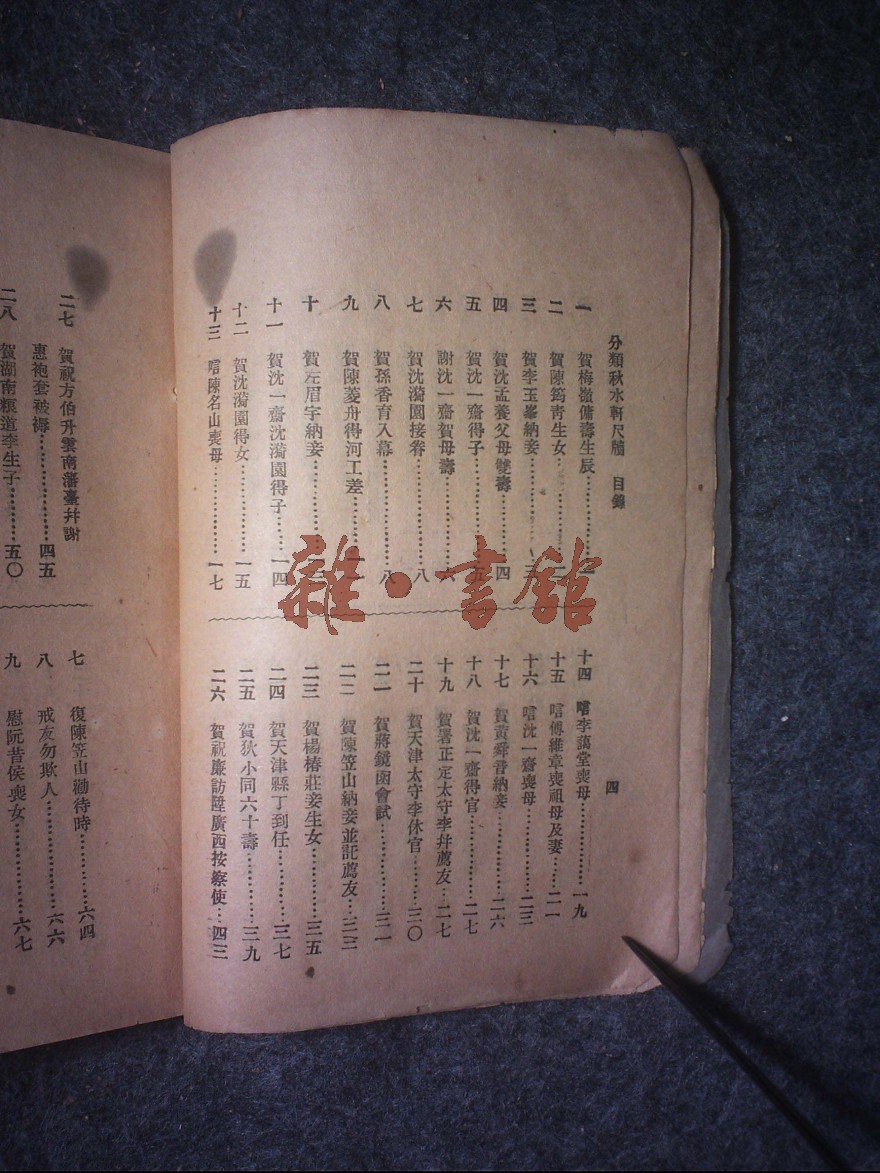 分類秋水軒尺牘　目錄
四
一　賀梅嶺傭壽生辰
二　賀陳筠靑生女
三　賀李玉峯納妾
四　賀沈孟養父母雙壽……四
五　賀沈一齋得子……五
六　謝沈一齋賀母壽……六
七　賀沈漪園接眷……八
八　賀孫香育入幕……八
九　賀陳菱舟得河工差
十　賀左眉宇納妾
十一　賀沈一齋沈漪園得子……一四
十二　賀沈漪園得女……一五
十三　唁陳名山喪母……一七
十四　唁李藹堂喪母……一九
十五　唁傅維章喪祖母及妻……二一
十六　唁沈一齋喪母……二三
十七　賀黃舜昔納妾……二六
十八　賀沈一齋得官……二七
十九　賀署正定太守李幷薦友……二七
二十　賀天津太守李休官……三〇
二一　賀蔣鏡函會試……三一
二二　賀陳笠山納妾並託薦友……三三
二三　賀楊椿莊妾生女……三五
二四　賀天津縣丁到任……三七
二五　賀狄小同六十壽……三九
二六　賀祝廉訪陞廣西按察使……四三
二七　賀祝方伯升雲南藩臺幷謝
惠袍套被褥……四五
二八　賀湖南糧道李生子……五〇
七　復陳笠山勸待時……六四
八　戒友勿欺人……六六
九　慰阮昔侯喪女……六七
雜·書館